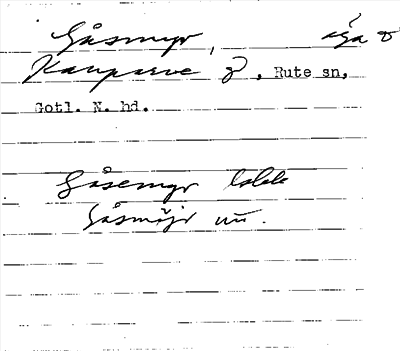 Gåsmyr, äga
Kauparve 8, Rute sn,
Gotl. N. hd.
Gåsemyr
Gåsmöjr nu.